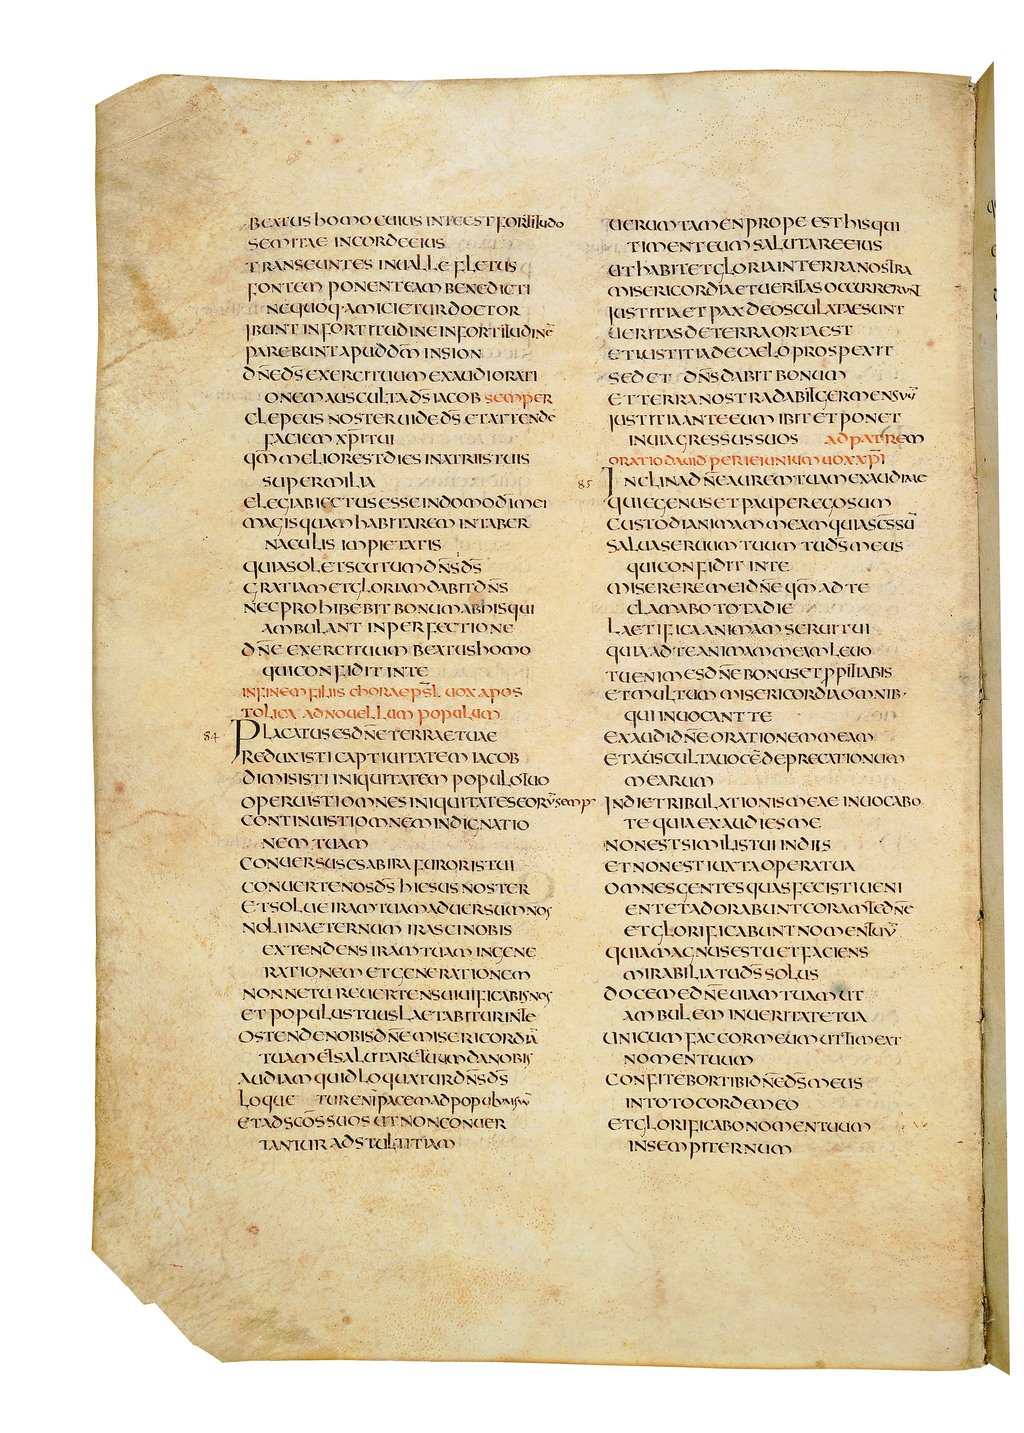 BEATUS homo CUIUS INTEEST FORTITUDO
SEMITAE IN CORDE EIUS
TRANSEUNTES IN UALLE FLETUS
FONTEM PONENT EAM BENEDICTI
NE QUOQ· AMICIETUR DOCTOR
IBUNT IN FORTITUDINE IN FORTITUDINĒ
PAREBUNT APUD DM̄ IN SION
DN̄E DS̄ EXERCITUUM EXAUDI ORATI
ONEM AUSCULTA DS̄ IACOB SEMPER
CLEPEUS NOSTER UIDE DS̄ ET ATTENDE
FACIEM XP̄I TUI
QM̄ MELIOR EST DIES IN ATRIIS TUIS
SUPER MILIA
ELEGI ABIECTUS ESSE IN DOMO DĪ MEI
MAGIS QUAM HABITAREM IN TABER
NACULIS IMPIETATIS
QUIA SOL ET SCUTUM DN̄S DS̄
GRATIAM ET GLORIAM DABIT DN̄S
NEC PROHIBEBIT BONUM AB HIS QUI
AMBULANT IN PERFECTIONE
DN̄E EXERCITUUM BEATUS HOMO
QUI CONFIDIT IN TE
IN FINEM FILIIS CHORAE PSL̄ UOX APOS
TOLICA AD NOUELLUM POPULUM
84 PLACATUS ES DN̄E TERRAE TUAE
REDUXISTI CAPTIUITATEM IACOB
DIMISISTI INIQUITATEM POPULO TUO
OPERUISTI OMNES INIQUITATES EORŪ SEMP·
CONTINUISTI OMNEM INDIGNATIO
NEM TUAM
CONUERSUS ES AB IRA FURORIS TUI
CONUERTE NOS DS̄ HIESUS NOSTER
ET SOLUE IRAM TUAM ADUERSUM NOS
NOLI IN AETERNUM IRASCI NOBIS
EXTENDENS IRAM TUAM IN GENE
RATIONEM ET GENERATIONEM
NONNE TU REUERTENS UIUIFICABIS NOS
ET POPULUS TUUS LAETABITUR IN TE
OSTENDE NOBIS DN̄E MISERICORDIĀ
TUAM ET SALUTARE TUUM DA NOBIS
AUDIAM QUID LOQUATUR DN̄S DS̄
LOQUE TUR ENI PACEM AD POPULUM SUŪ
ET AD SC̄OS SUOS UT NON CONUER
TANTUR AD STULTITIAM
UERUMTAMEN PROPE EST HIS QUI
TIMENT EUM SALUTARE EIUS
UT HABITET GLORIA IN TERRA NOSTRA
MISERICORDIA ET UERITAS OCCURRERUNT
IUSTITIA ET PAX DEOSCULATAE SUNT
UERITAS DE TERRA ORTA EST
ET IUSTITIA DE CAELO PROSPEXIT
SED ET DN̄S DABIT BONUM
ET TERRA NOSTRA DABIT GERMEN SUŪ
IUSTITIA ANTE EUM IBIT ET PONET
IN UIA GRESSUS SUOS AD PATREM
ORATIO DAUID PER IEIUNIUM UOX XP̄I
85 INCLINA DN̄E AUREM TUAM EXAUDI ME
QUI EGENUS ET PAUPER EGO SUM
CUSTODI ANIMAM MEAM QUIA SC̄S SŪ
SALUA SERUUM TUUM TU DS̄ MEUS
QUI CONFIDIT IN TE
MISERERE MEI DN̄E QM̄ AD TE
CLAMABO TOTA DIE
LAETIFICA ANIMAM SERUI TUI
QUIA AD TE ANIMAM MEAM LEUO
TU ENIM ES DN̄E BONUS ET PPITIABIS
ET MULTUM MISERICORDIA OMNIB·
QUI INUOCANT TE
EXAUDI DN̄E ORATIONEM MEAM
ET AUSCULTA UOCĒ DEPRECATIONUM
MEARUM
IN DIE TRIBULATIONIS MEAE INUOCABO
TE QUIA EXAUDIES ME
NON EST SIMILIS TUI IN DIIS
ET NON EST IUXTA OPERA TUA
OMNES GENTES QUAS FECISTI UENI
ENT ET ADORABUNT CORAM TE DN̄E
ET GLORIFICABUNT NOMEN TUŪ
QUIA MAGNUS ES TU ET FACIENS
MIRABILIA TU DS̄ SOLUS
DOCE ME DN̄E UIAM TUAM UT
AMBULEM IN UERITATE TUA
UNICUM FAC COR MEUM UT TIMEAT
NOMEN TUUM
CONFITEBOR TIBI DN̄E DS̄ MEUS
IN TOTO CORDE MEO
ET GLORIFICABO NOMEN TUUM
IN SEMPITERNUM